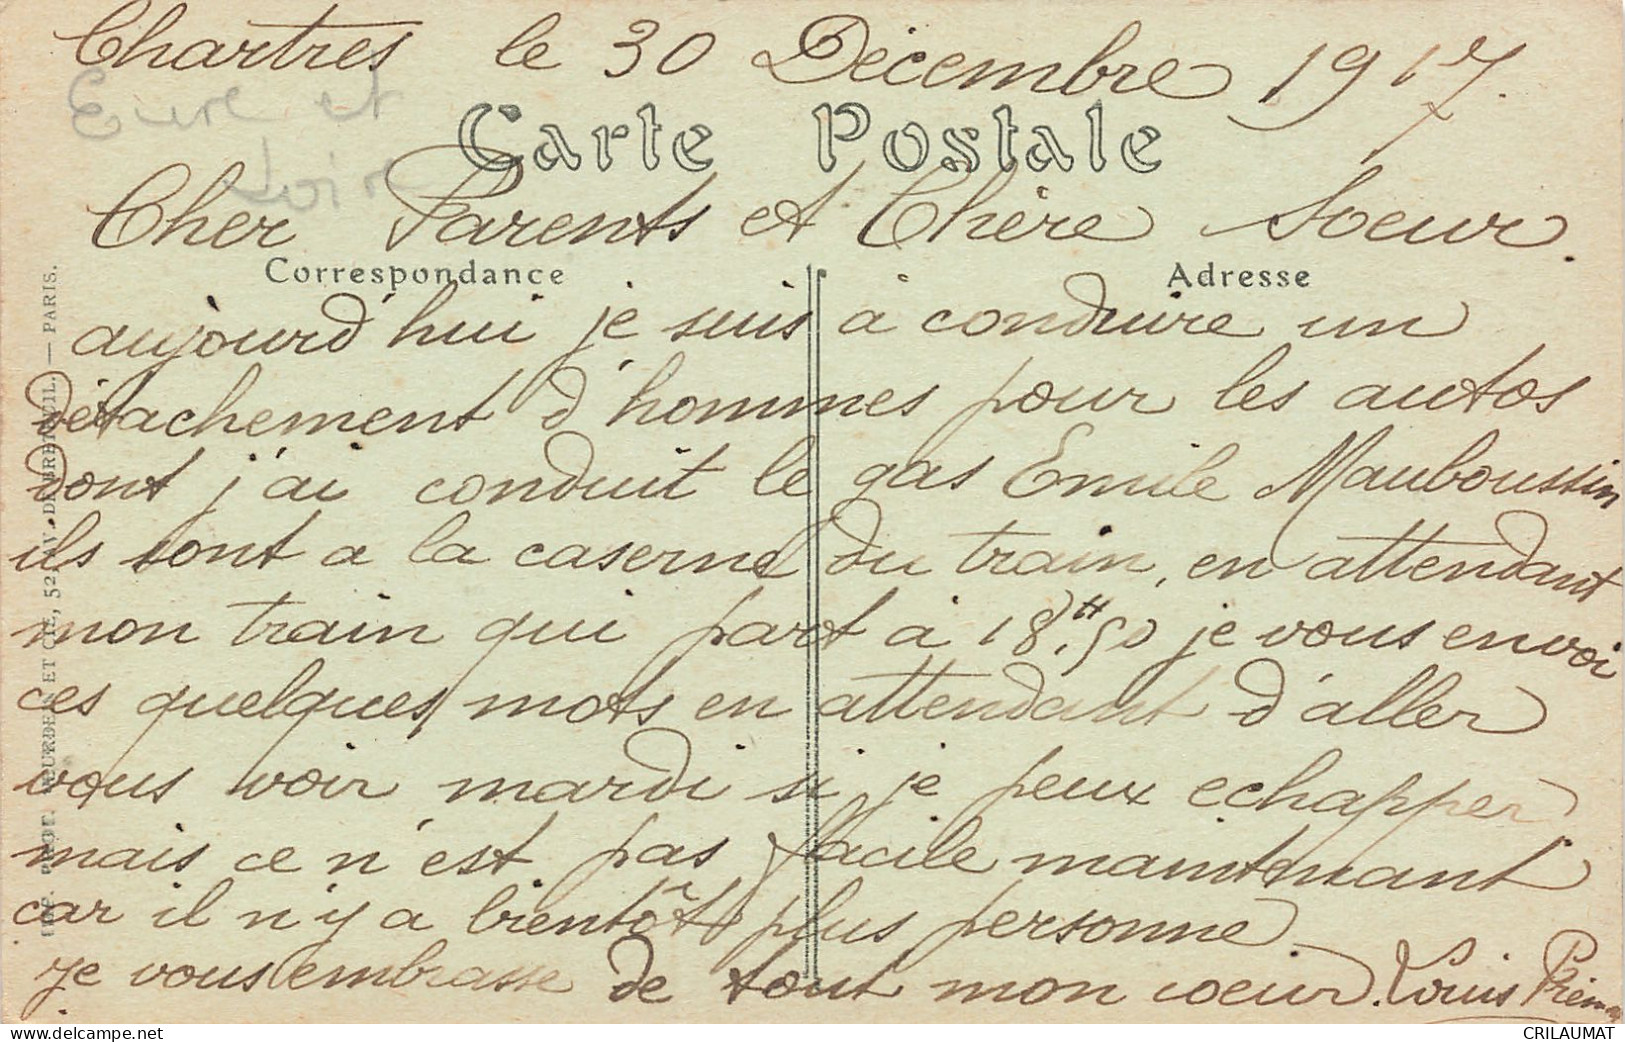 Chartres le 30 Décembre 1917.
Eure et
Loir
Carte Postale
Cher Parents et Chère Soeur.
Correspondance
Adresse
aujourd'hui je suis à conduire un
détachement d'hommes pour les autos
dont j'ai conduit le gas Emile Mauboussin
ils sont a la caserne du train, en attendant
mon train qui part à 18H.50 je vous envoi
ces quelques mots en attendant d'aller
vous voir mardi si je peux echapper
mais ce n'est pas facile maintenant
car il n'y a bientôt plus personne
Je vous embrasse de tout mon coeur. Louis
— PARIS.
CRILAUMAT